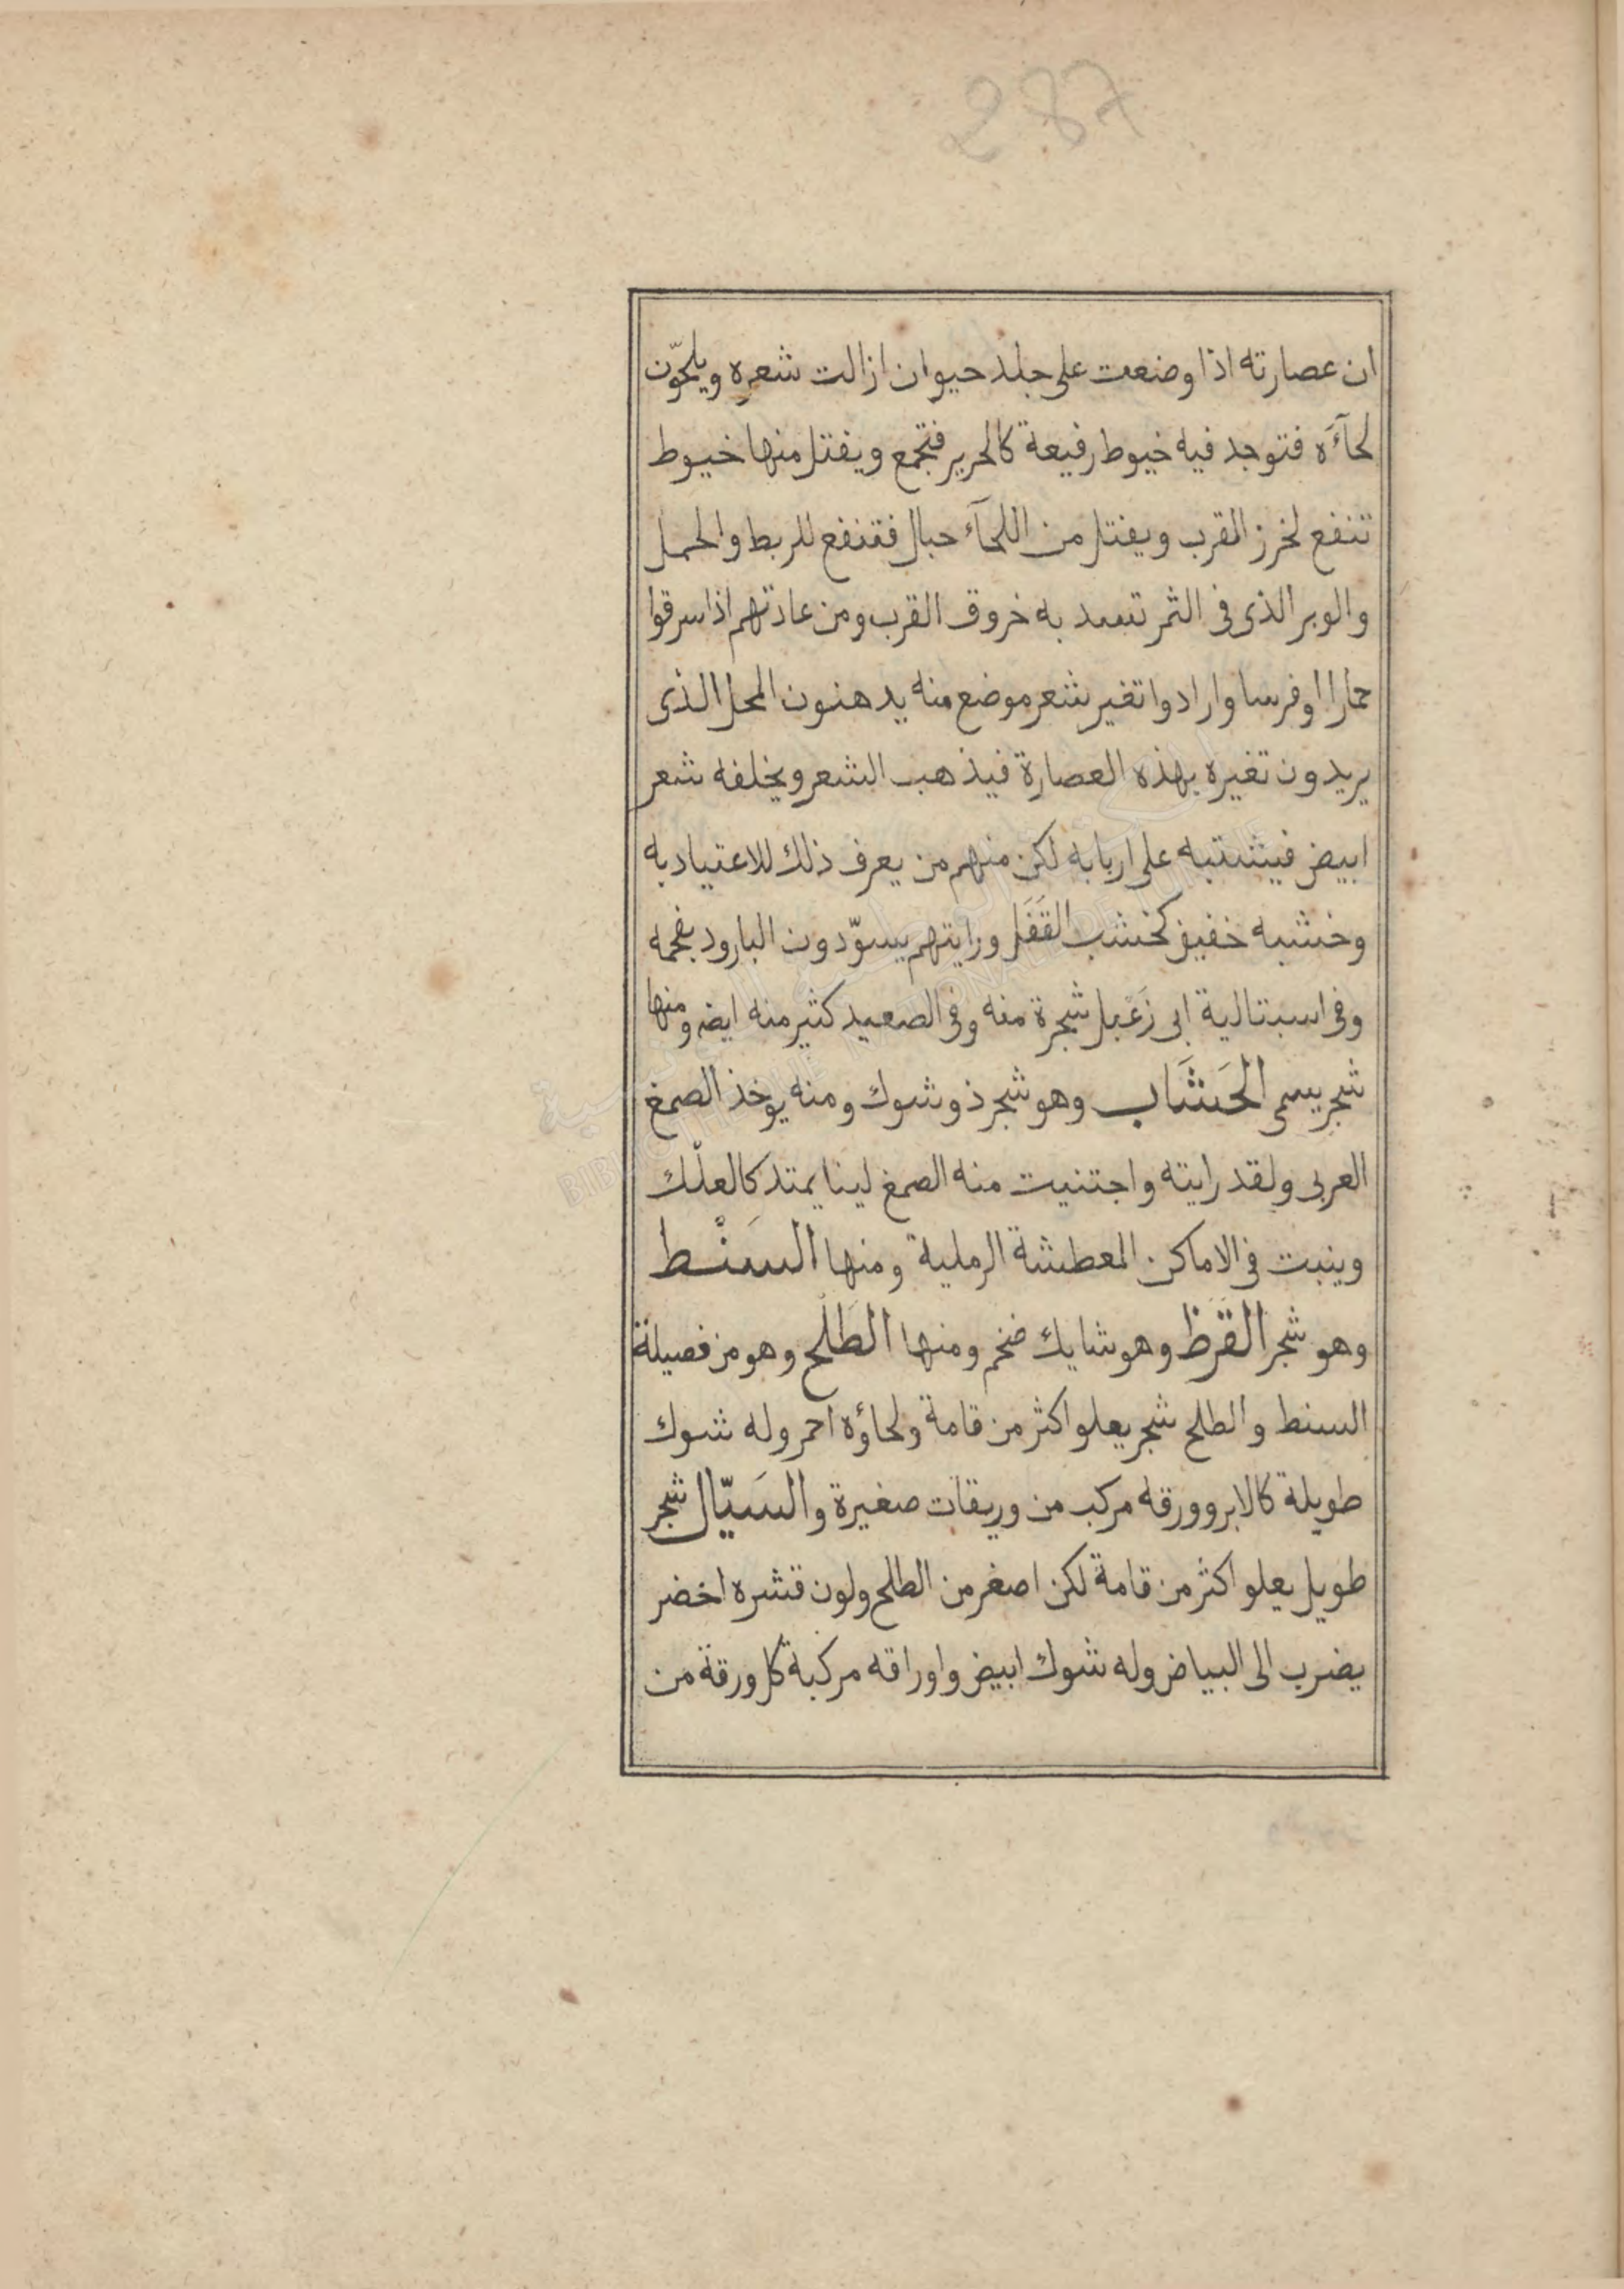 287
ان عصارته اذا وضعت على جلد حيوان ازالت شعره ويلحّون
لحآءَه فتوجد فيه خيوط رفيعة كالحرير فتجمع ويفتل منها خيوط
تنفع لخرز القرب ويفتل من اللحآء حبال فتنفع للربط والحمل
والوبر الذى فى الثمر تسد به خروق القرب ومن عادتهم اذا سرقوا
حمارا او فرسا وارادوا تغير شعر موضع منه يدهنون المحل الذى
يريدون تغيره بهذه العصارة فيذهب الشعر ويخلفه شعر
ابيض فيشتبه على اربابه لكن منهم من يعرف ذلك للاعتياد به
وخشبه خفيف كخشب القَفَل ورايتهم يسوّدون البارود بفحمه
وفى اسبتالية ابى زَعْبل شجرة منه وفى الصعيد كثير منه ايضا ومنها
شجر يسمى الحَشَاب وهو شجر ذو شوك ومنه يوخذ الصمغ
العربى ولقد رايته واجتنيت منه الصمغ لينا يمتد كالعلْك
وينبت فى الاماكن المعطشة الرملية ومنها السَنْط
وهو شجر القَرَظ وهو شايك ضخم ومنها الطَلْح وهو من فصيلة
السنط والطلح شجر يعلو اكثر من قامة ولحاؤه احمر وله شوك
طويلة كالابر وورقه مركب من وريقات صغيرة والسَيّال شجر
طويل يعلو اكثر من قامة لكن اصغر من الطلح ولون قشره اخضر
يضرب الى البياض وله شوك ابيض واوراقه مركبة كل ورقة من